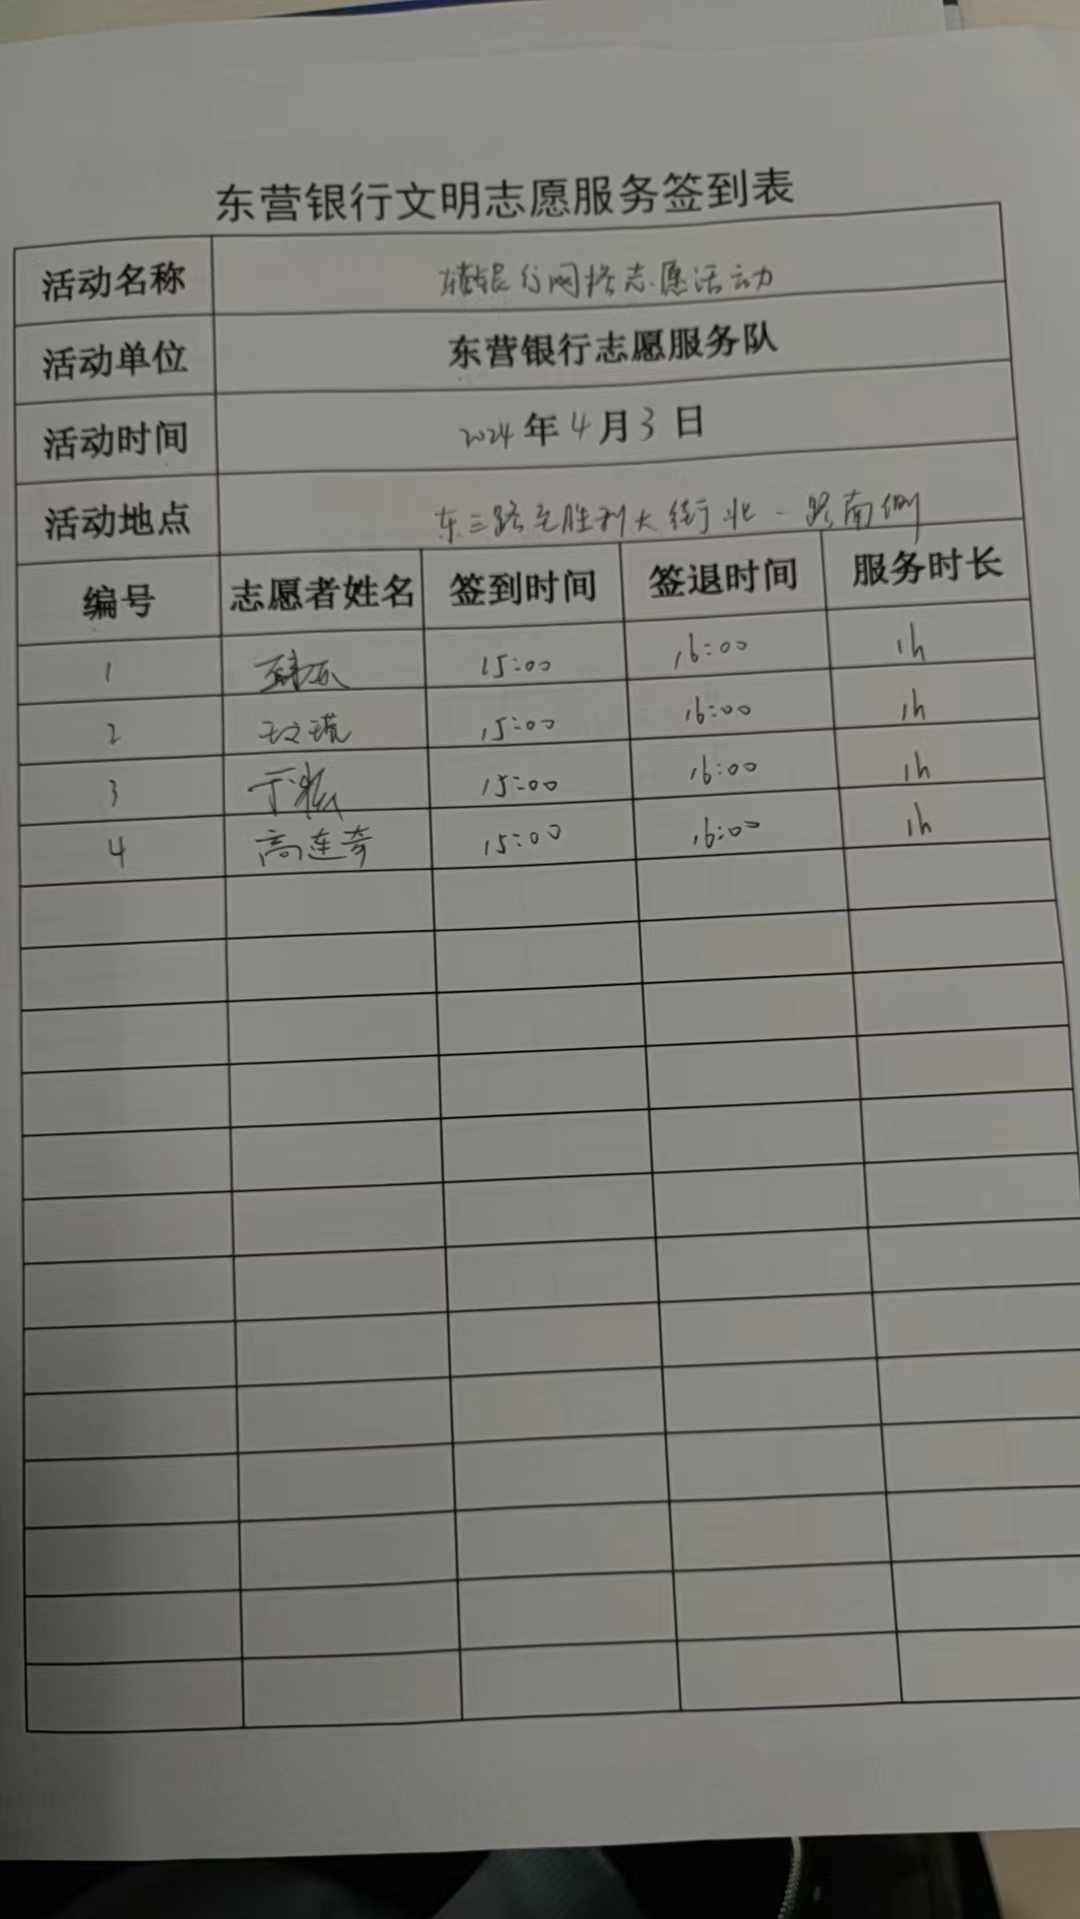 东营银行文明志愿服务签到表
活动名称 东营银行网格志愿活动
活动单位 东营银行志愿服务队
活动时间 2024年4月3日
活动地点 东三路 胜利大街 北一路南侧
编号 志愿者姓名 签到时间 签退时间 服务时长
1 15:00 16:00 1h
2 15:00 16:00 1h
3 15:00 16:00 1h
4 高连奇 15:00 16:00 1h